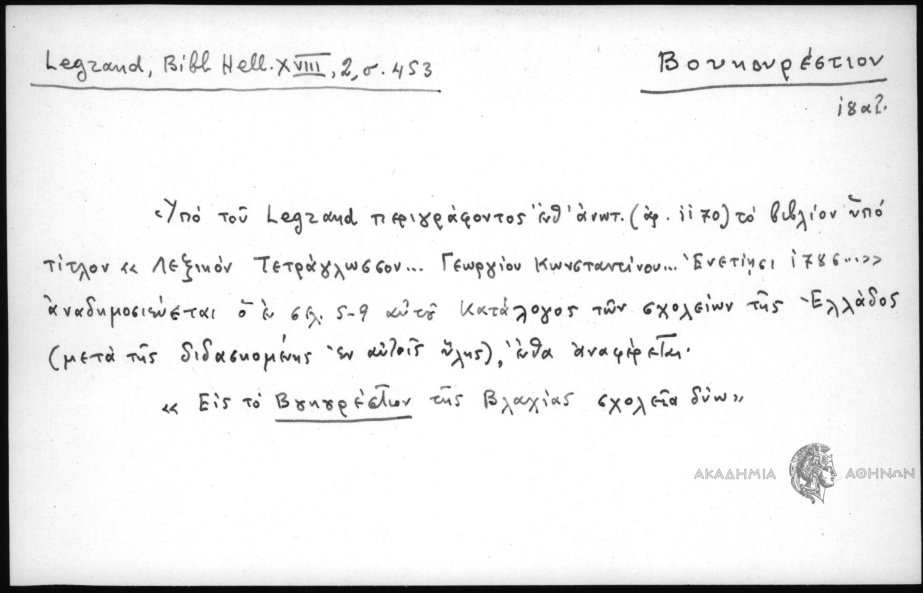 Legrand, Bibl Hell. XVIII, 2, σ. 453
Βουκουρέστιον
18α2.
Ὑπό τοῦ Legrand περιγράφοντος ἐνθ' ἀνωτ. (ἀρ. 1170) τό βιβλίον ὑπό
τίτλον « Λεξικόν Τετράγλωσσον... Γεωργίου Κωνσταντίνου... Ἐνετίησι 1786...»
ἀναδημοσιεύεται ὁ ἐν σελ. 5-9 αὐτοῦ Κατάλογος τῶν σχολείων τῆς Ἑλλάδος
(μετά τῆς διδασκομένης ἐν αὐτοῖς ὕλης), ἔνθα ἀναφέρεται·
« Εἰς τό Βȣκȣρέστιον τῆς Βλαχίας σχολεῖα δύω»
ΑΚΑΔΗΜΙΑ ΑΘΗΝΩΝ